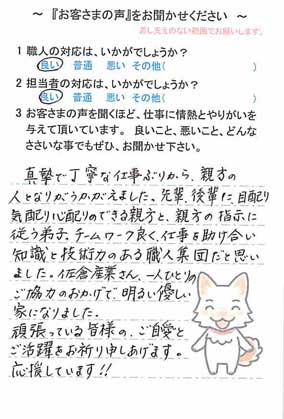 ～ 『お客さまの声』をお聞かせください ～
差し支えのない範囲でお願いします。
1 職人の対応は、いかがでしょうか？
良い 普通 悪い その他( )
2 担当者の対応は、いかがでしょうか？
良い 普通 悪い その他( )
3 お客さまの声を聞くほど、仕事に情熱とやりがいを
与えて頂いています。 良いこと、悪いこと、どんな
ささいな事でもぜひ、お聞かせ下さい。
真摯で丁寧な仕事ぶりから、親方の
人となりがうかがえました。先輩、後輩に、目配り
気配り心配りのできる親方と、親方の指示に
従う弟子、チームワーク良く、仕事を助け合い
知識と技術力のある職人集団だと思い
ました。佐倉産業さん、一人ひとりの
ご協力のおかげで、明るい優しい
家になりました。
頑張っている皆様の、ご自愛と
ご活躍をお祈り申しあげます。
応援しています!!